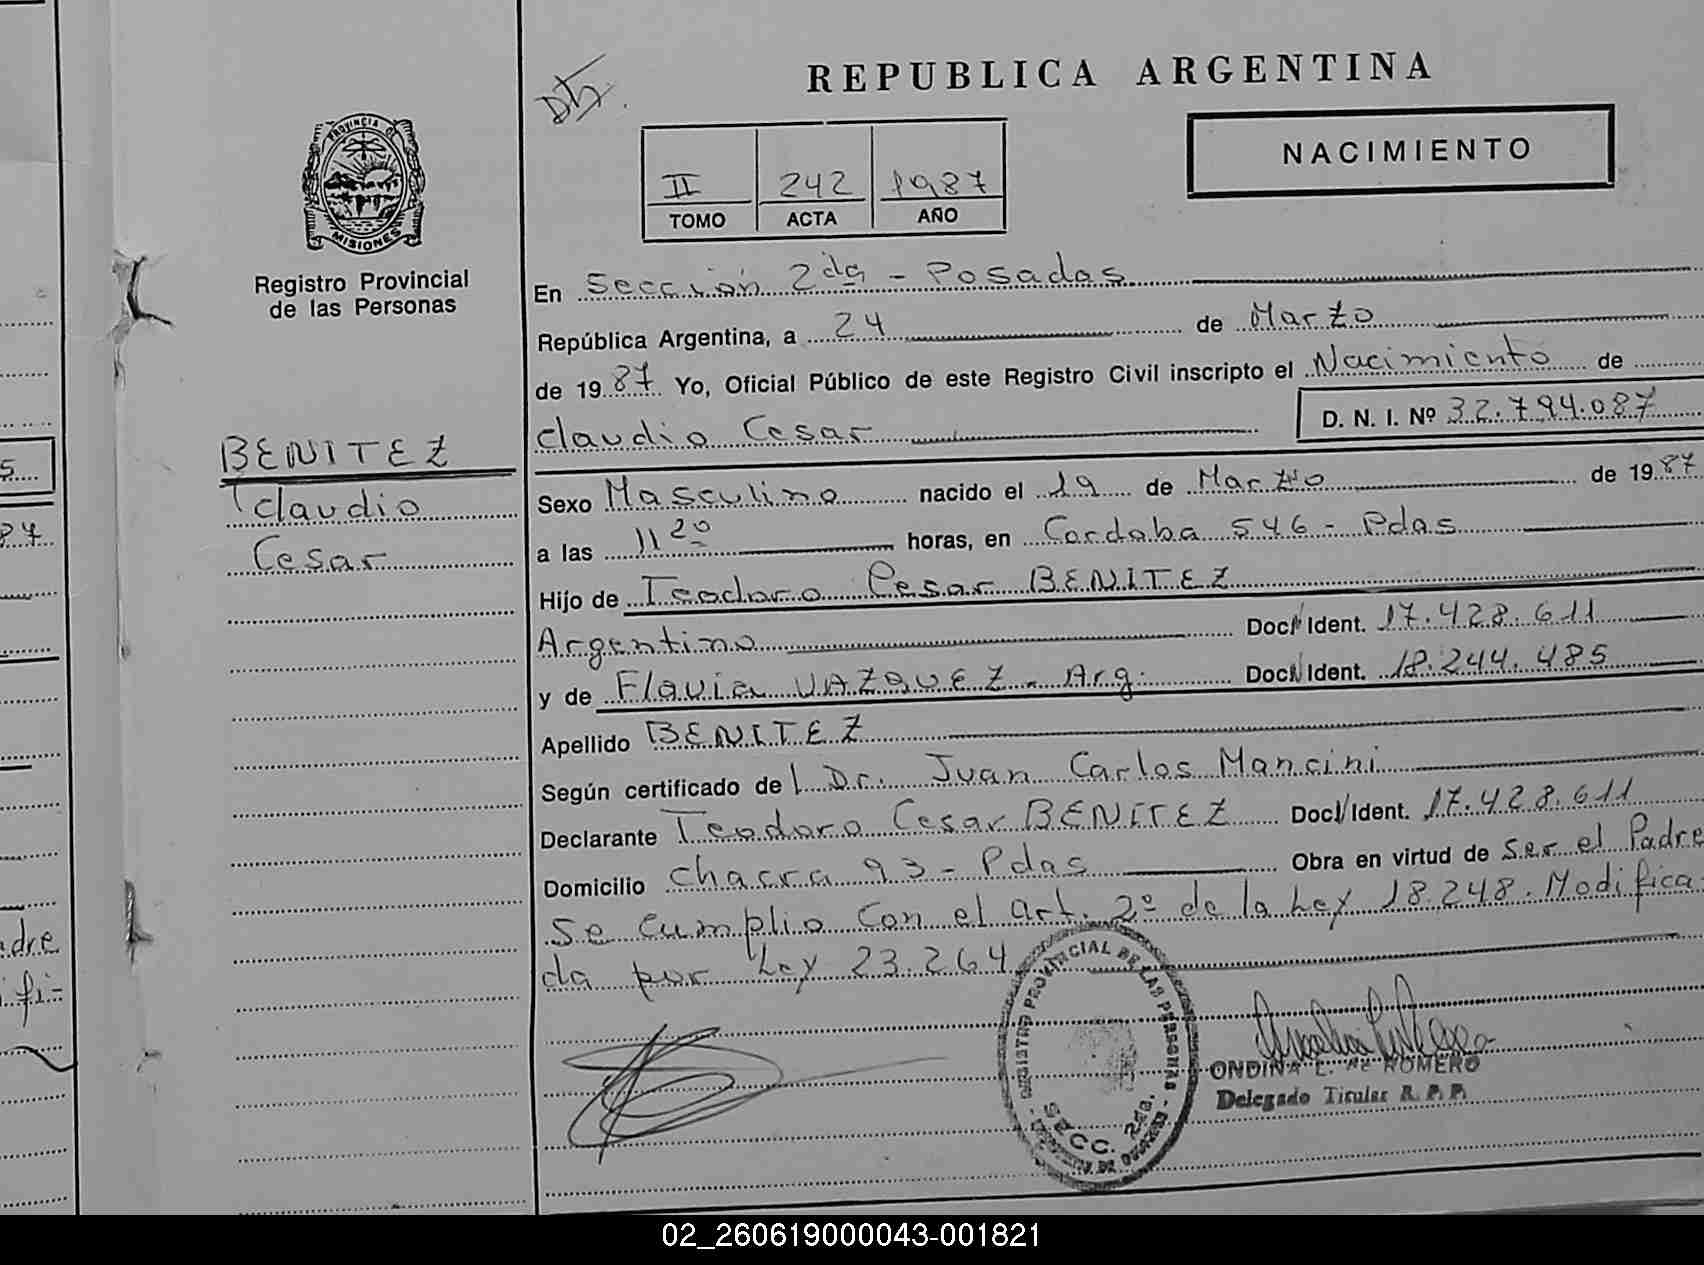 REPUBLICA ARGENTINA
PROVINCIA DE
MISIONES
Registro Provincial
de las Personas
NACIMIENTO
II 242 1987
TOMO ACTA AÑO
BENITEZ
Claudio
Cesar
En Sección 2da - Posadas
República Argentina, a 24 de Marzo
de 1987 Yo, Oficial Público de este Registro Civil inscripto el Nacimiento de
Claudio Cesar D. N. I. Nº 32.794.087
Sexo Masculino nacido el 19 de Marzo de 1987
a las 11 20 horas, en Cordoba 546 - Pdas
Hijo de Teodoro Cesar BENITEZ
Argentino Doc. Ident. 17.428.611
y de Flavia VAZQUEZ - Arg. Doc. Ident. 18.244.485
Apellido BENITEZ
Según certificado de l Dr. Juan Carlos Mancini
Declarante Teodoro Cesar BENITEZ Doc. Ident. 17.428.611
Domicilio Chacra 93 - Pdas Obra en virtud de Ser el Padre
Se cumplio con el art. 2º de la Ley 18.248. Modifica-
da por Ley 23.264
REGISTRO PROVINCIAL DE LAS PERSONAS
SECC. 2da.
ONDINA L. de ROMERO
Delegado Titular R. P. P.
5
87
adre
ifi-
02_260619000043-001821